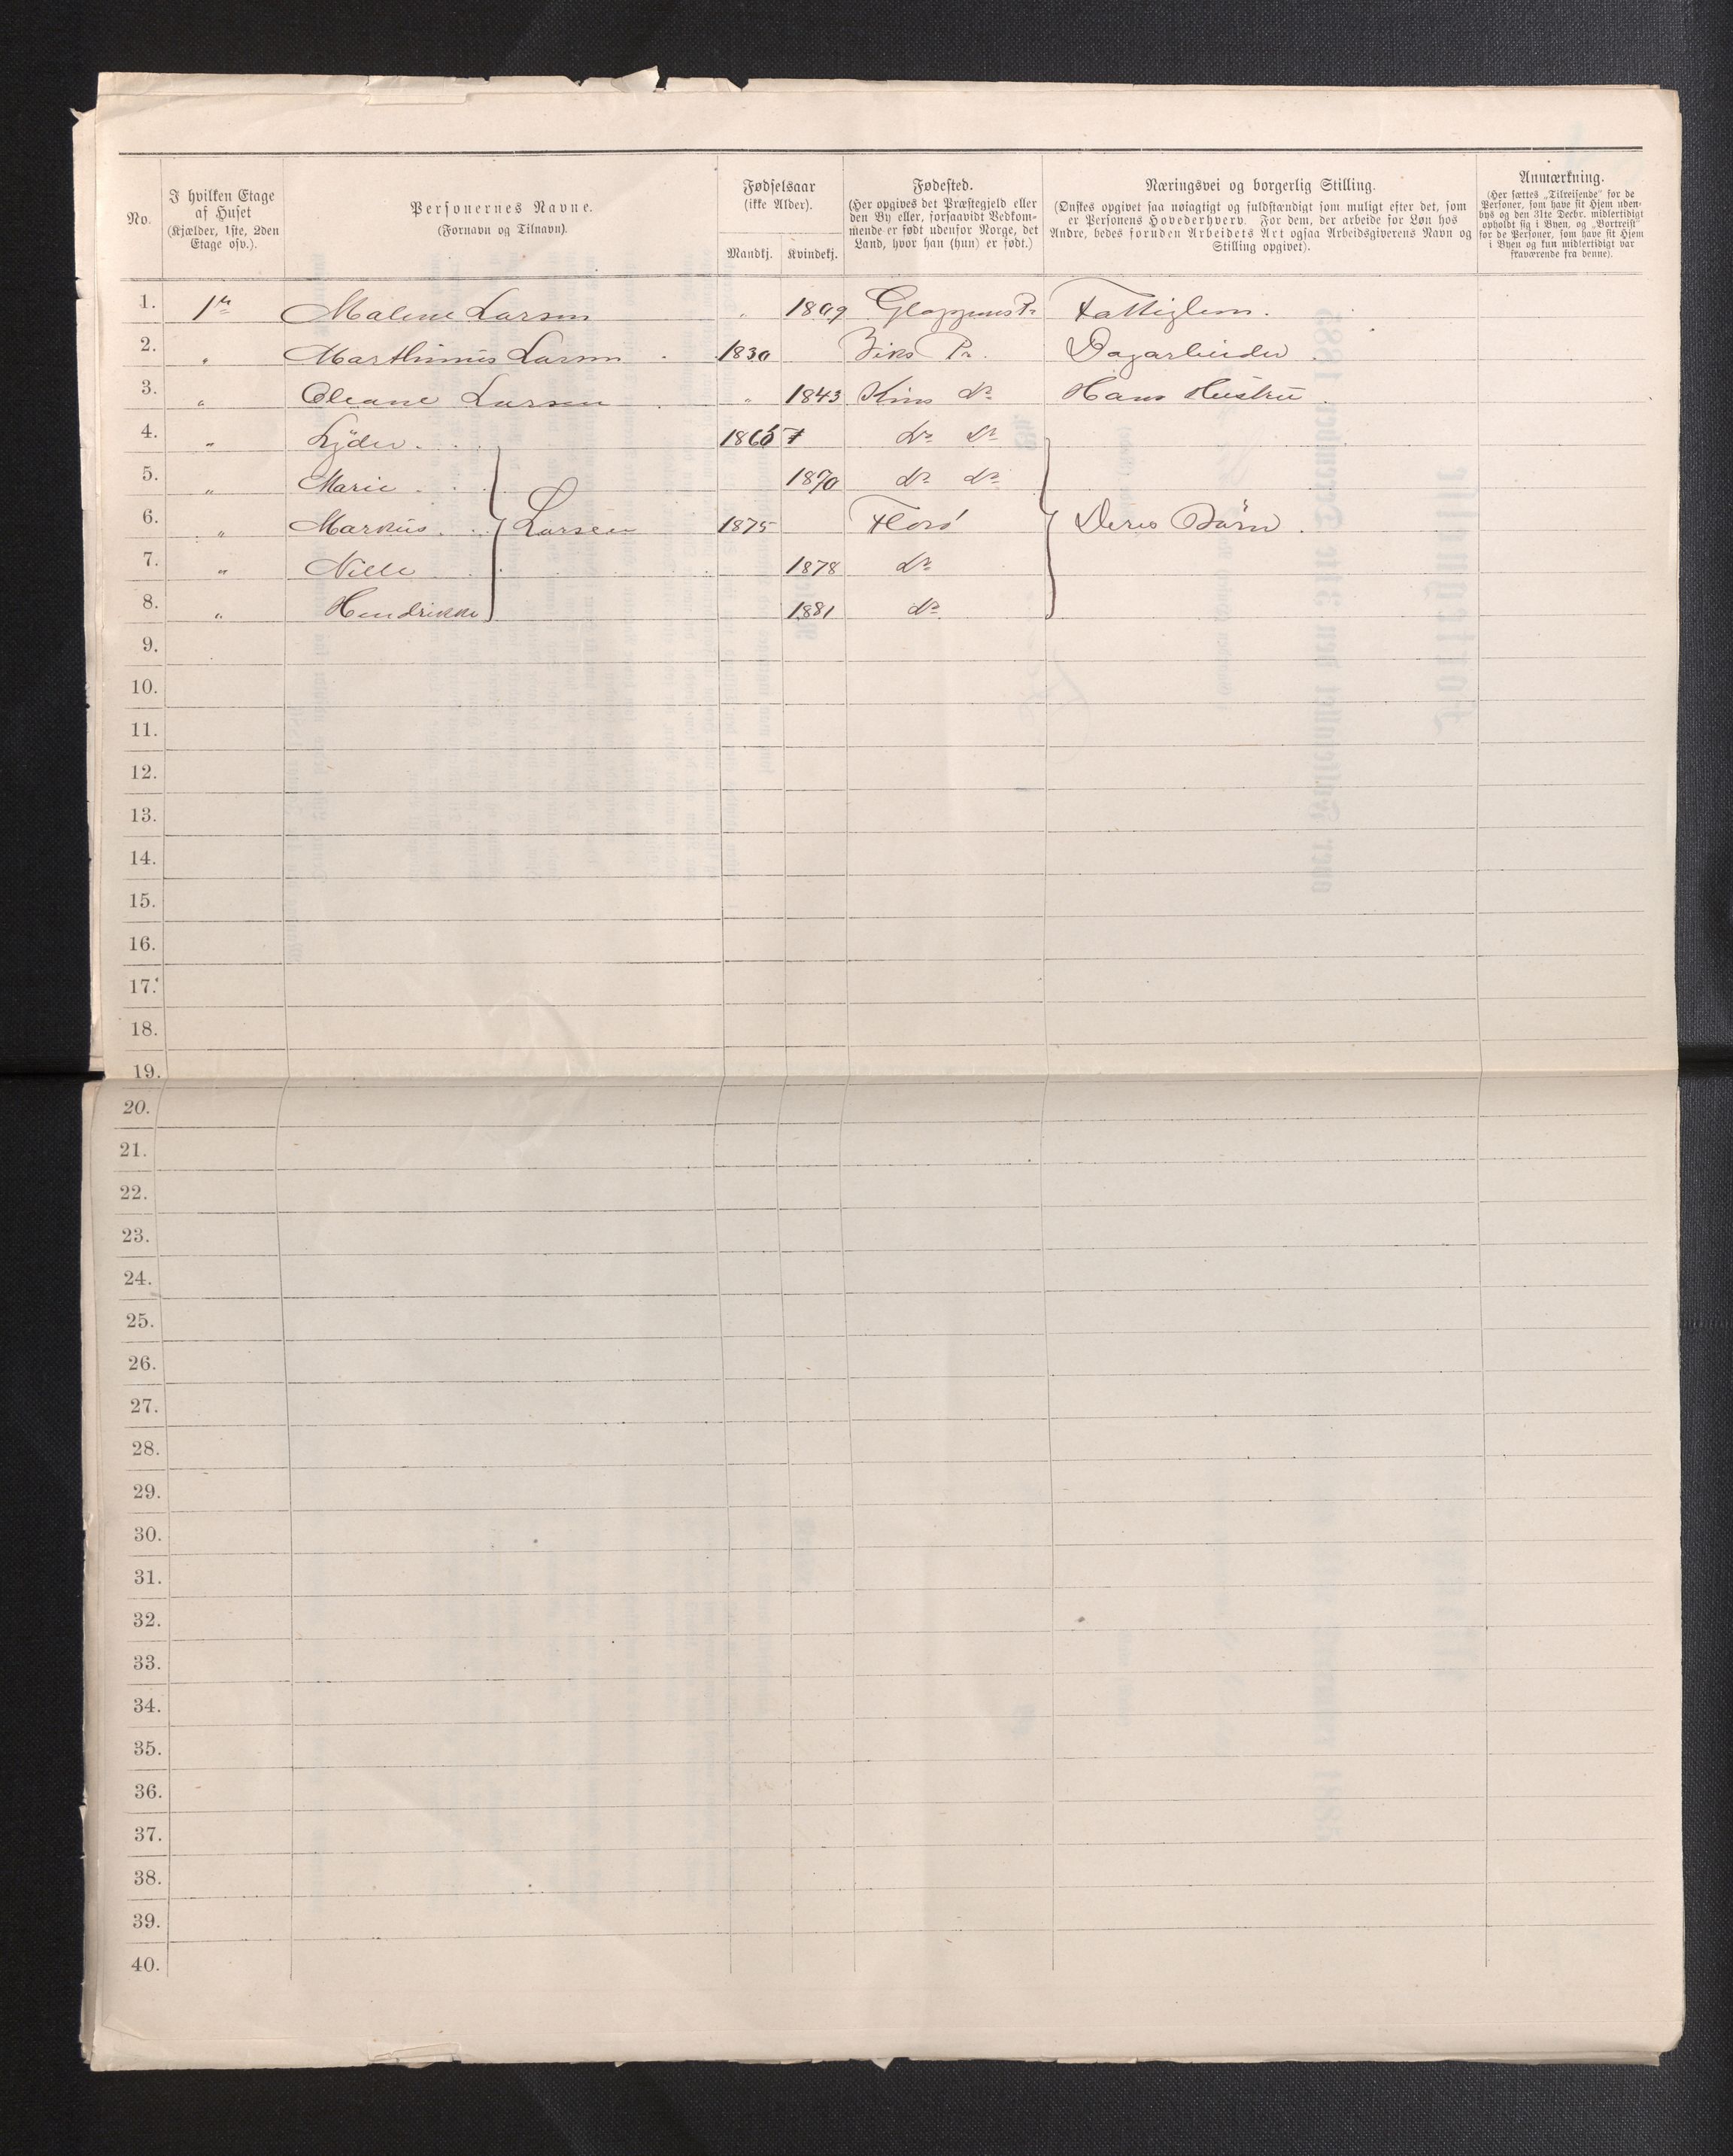 No.
I hvilken Etage
af Huset
(Kjælder, 1ste, 2den
Etage osv.).
Personernes Navne.
(Fornavn og Tilnavn).
Fødselsaar
(ikke Alder).
Mandkj. Kvindekj.
Fødested.
(Her opgives det Præstegjeld eller
den By eller, forsaavidt Vedkom-
mende er født udenfor Norge, det
Land, hvor han (hun) er født.)
Næringsvei og borgerlig Stilling.
(Ønskes opgivet saa nøiagtigt og fuldstændigt som muligt efter det, som
er Personens Hovederhverv. For dem, der arbeide for Løn hos
Andre, bedes foruden Arbeidets Art ogsaa Arbeidsgiverens Navn og
Stilling opgivet).
Anmærkning.
(Her sættes „Tilreisende" for de
Personer, som have sit Hjem uden-
bys og den 31te Decbr. midlertidigt
opholdt sig i Byen, og „Bortreist"
for de Personer, som have sit Hjem
i Byen og kun midlertidigt var
fraværende fra denne).
1. Malene Larsen " Gloppens Pr Fattiglem.
2. " Marthinus Larsen 1830 Viks Pr. Dagarbeider
3. " Oleane Larsen " 1843 Kins do Hans Hustru
4. " Lyder do do
5. " Marie 1870 do do
6. " Markus Larsen 1875 Florø Deres Børn
7. " Nille 1878 do
8. " Hendrikke 1881 do
9.
10.
11.
12.
13.
14.
15.
16.
17.
18.
19.
20.
21.
22.
23.
24.
25.
26.
27.
28.
29.
30.
31.
32.
33.
34.
35.
36.
37.
38.
39.
40.